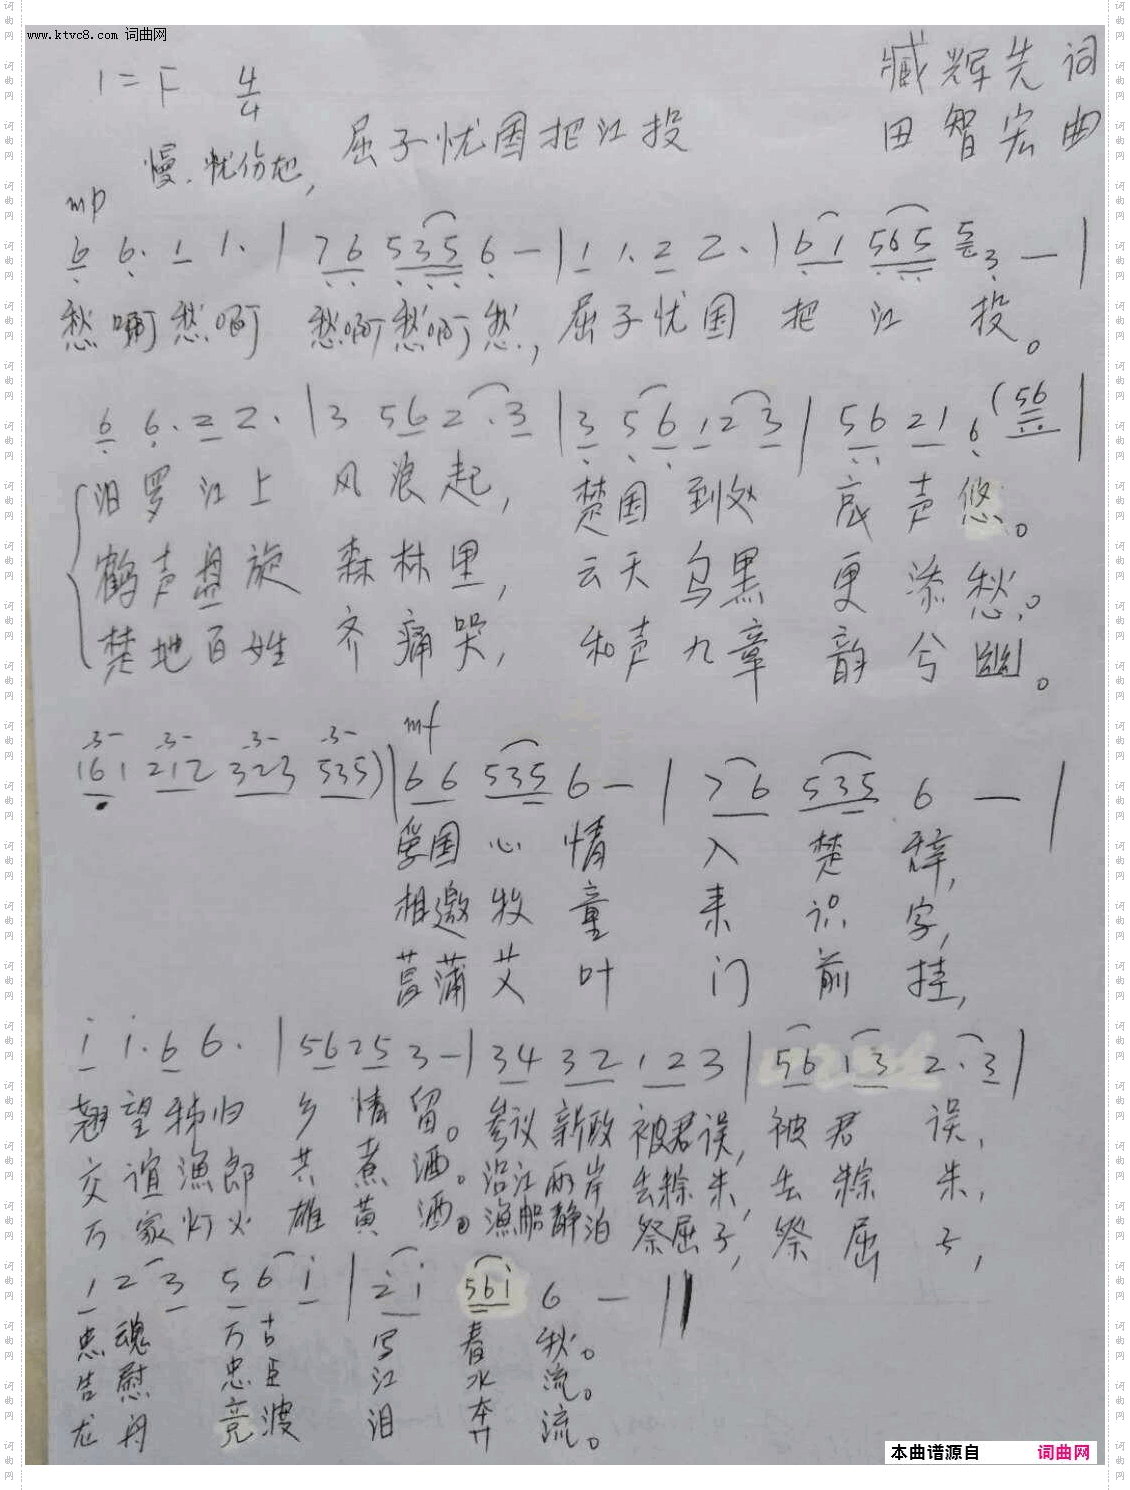 www.ktvc8.com 词曲网
臧辉先 词
1=F 4/4
田智宏 曲
屈子忧国把江投
慢.忧伤地,
mp
6 6. 1 1. | 76 535 6 — | 1 1. 2 2. | 61 565 5 3 — |
愁啊愁啊 愁啊愁啊愁, 屈子忧国 把 江 投。
6 6. 2 2. | 3 56 2. 3 | 3 5 6 1 2 3 | 56 21 6 (56 |
汨罗江上 风浪起, 楚国到处 哀声悠。
鹤声盘旋 森林里, 云天乌黑 更添愁。
楚地百姓 齐痛哭, 和声九章 韵兮幽。
3 3 3 3 mf
161 212 323 535) | 66 535 6 — | 76 535 6 — |
国心情 入楚辞,
相邀牧童 来识字,
菖蒲艾叶 门前挂,
i i. 6 6. | 5625 3 — | 34 32 12 3 | 56 13 2. 3 |
翘望秭归 乡情留。参议新政被君误, 被君误,
交谊渔郎 共煮酒。沿江两岸去粽朱, 去粽朱,
万家灯火 雄黄酒。渔船静泊祭屈子, 祭屈子,
1 2 3 5 6 i | 2 i 56i 6 — ||
忠魂 万古 写春秋。
告慰 忠臣 江水流。
龙舟 竞波 汨奔流。
本曲谱源自 词曲网